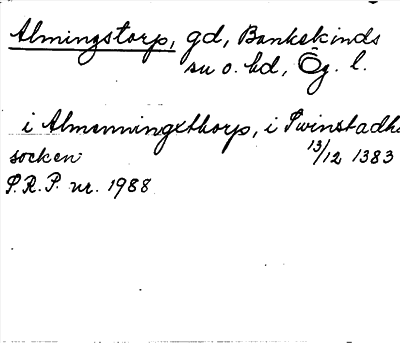 Almingstorp, gd, Bankekinds
su o. hd, Ög. l.
i Almenningxthorp, i Swinstadha
socken 13/12 1383
S.R.P. nr. 1988